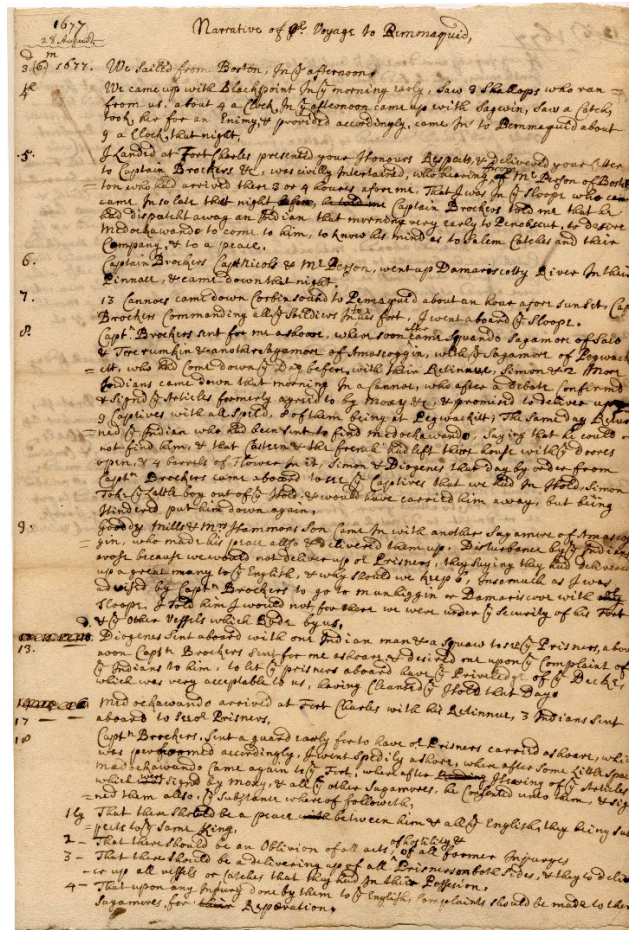 1677
28 August
Narrative of yͤ Voyage to Pemmaquid,
3 (6) 1677. We Sailed from Boston, In yͤ afternoon.
4 We came up with Blackpoint In yͤ morning early, Saw 3 Shallops who ran
from us. about 4 a Clock In yͤ afternoon came up with Sagwin, Saw a Catch,
took her for an Enimy, & provided accordingly, came In to Pemmaquid about
9 a Clock that night
.5. I Landed at Fort Charles presented your Honours Respects, & delivered your letter
to Captain Brockers &c, was civilly Intertained, who hearing of Mr Person of Bost=
ton who had arrived there 3 or 4 houres afore me, That I was In yͤ Sloope who
came In so late that night Captain Brockers told me that he
had dispatcht away an Indian that morning very early to Penobscut, to desire
Medockawando to come to him, to know his mind as to Salem Catches and their
Company, & to a peace.
6. Captain Brockers Capt Nicols & Mr Person, went up Damariscotty River In their
Pinnace, & came down that night.
7. 13 Cannoes came down Corbin sound to Pemaquid about an hour afore sunset, Capt
Brockers Commanding all yͤ Soldiers In his fort, I went aboard yͤ Sloope.
8. Captⁿ Brockers sent for me a shoare, where soon after came Squando Sagamor of Saco
& Tore rumkin & another Sagamore of Amascoggin, with yͤ Sagamore of Pegwack
ett, who had Come down yͤ Day before, with their Retinnue, Simon & 12 More
Indians came down that morning In a Cannoe, who after a debate Confirmd
& Signd yͤ Articles formerly agreed to by Moxy &c, & promised to deliver up
9 Captives with all Speed, 8 of them being at Pegwackitt; The Same day Retur
=ned yͤ Indian who had been sent to find Medockawando, Saying that he could
not find him, & that Casteen & the french had left there house with yͤ dorres
open, & 4 barrels of Flower In it, Simon & Diogenes that day by order from
Captⁿ Brockers came aboard to see yͤ Captives that we had In Hold. Simon
Took yͤ Little boy out of yͤ Hold, & would have carried him away, but being
Hindered put him down again.
9. Goody Mills & Mrs Hammons Son Came In with another Sagamore of Amascog
=gin, who made his peace allso & delivered them up. Disturbance by yͤ Indians
arose because we would not deliver up oͬ Prisners, they saying they had delivered
up a great many to yͤ English, & why should we keep 6, Insomuch as I was
advised by Captⁿ Brockers to go to Munhiggin or Damariscove with
Sloope. I told him I would not for there we were under yͤ Security of his Fort
& yͤ Other Vessels which Rode by us.
13. Diogenes Sent aboard with one Indian man & a Squaw to see yͤ Prisners, about
noon Captⁿ Brockers Sent for me ashoare, & desired me upon yͤ Complaint of
yͤ Indians to him, to let yͤ prisners aboard have yͤ Priviledge of yͤ Decke,
which was very acceptable to us, having Cleanted yͤ Hold that Day.
17 Medockawando arrived at Fort Charles with his Retinnue, 3 Indians Sent
aboard to see oͬ Prisners.
18 Captⁿ Brockers, Sent a guard early for to have oͬ Prisners carried ashoare, which
was performed accordingly, I went Spedily ashore, where after some little Space
Madockawando Came again to yͤ Fort, where after Hearing of yͤ Articles
which were signd by Moxy, & all yͤ other Sagamores, he Consented unto them, & sig
=ned them allso. yͤ Substance where of followeth,
1ly That there should be a peace between him & all yͤ English, they being sub
=jects to yͤ Same King.
2 - That there should be an Oblivion of all acts of hostility & of all former Injuryes
3 - That there should be a delivering up of all Prisners on both sides, & they to deliv
=er up all vessels or Catches that they had In their Possesion.
4 - That upon any Injury done by them to yͤ English, Complaints should be made to their
Sagamores, for Reparation.